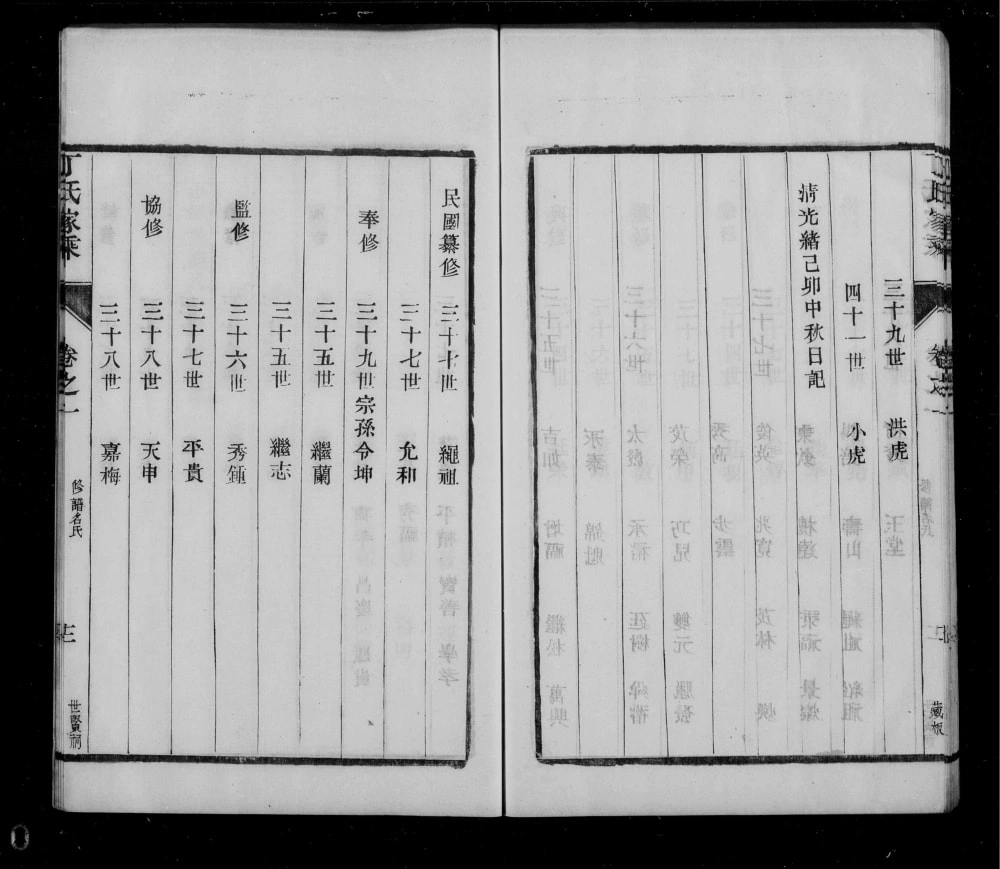 三十九世 洪虎
四十一世 小虎
清光緒己卯中秋日記
民國纂修 三十七世 繩祖
三十七世 允和
奉修 三十九世宗孫令坤
三十五世 繼蘭
三十五世 繼志
監修 三十六世 秀鍾
三十七世 平貴
協修 三十八世 天申
三十八世 嘉梅
丁氏家乘 卷之一 修譜名氏 世賢祠